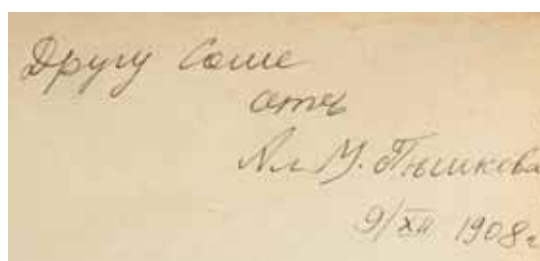 Другу Саше
отъ
Ал. М. Пышкова
9/XII 1908 г